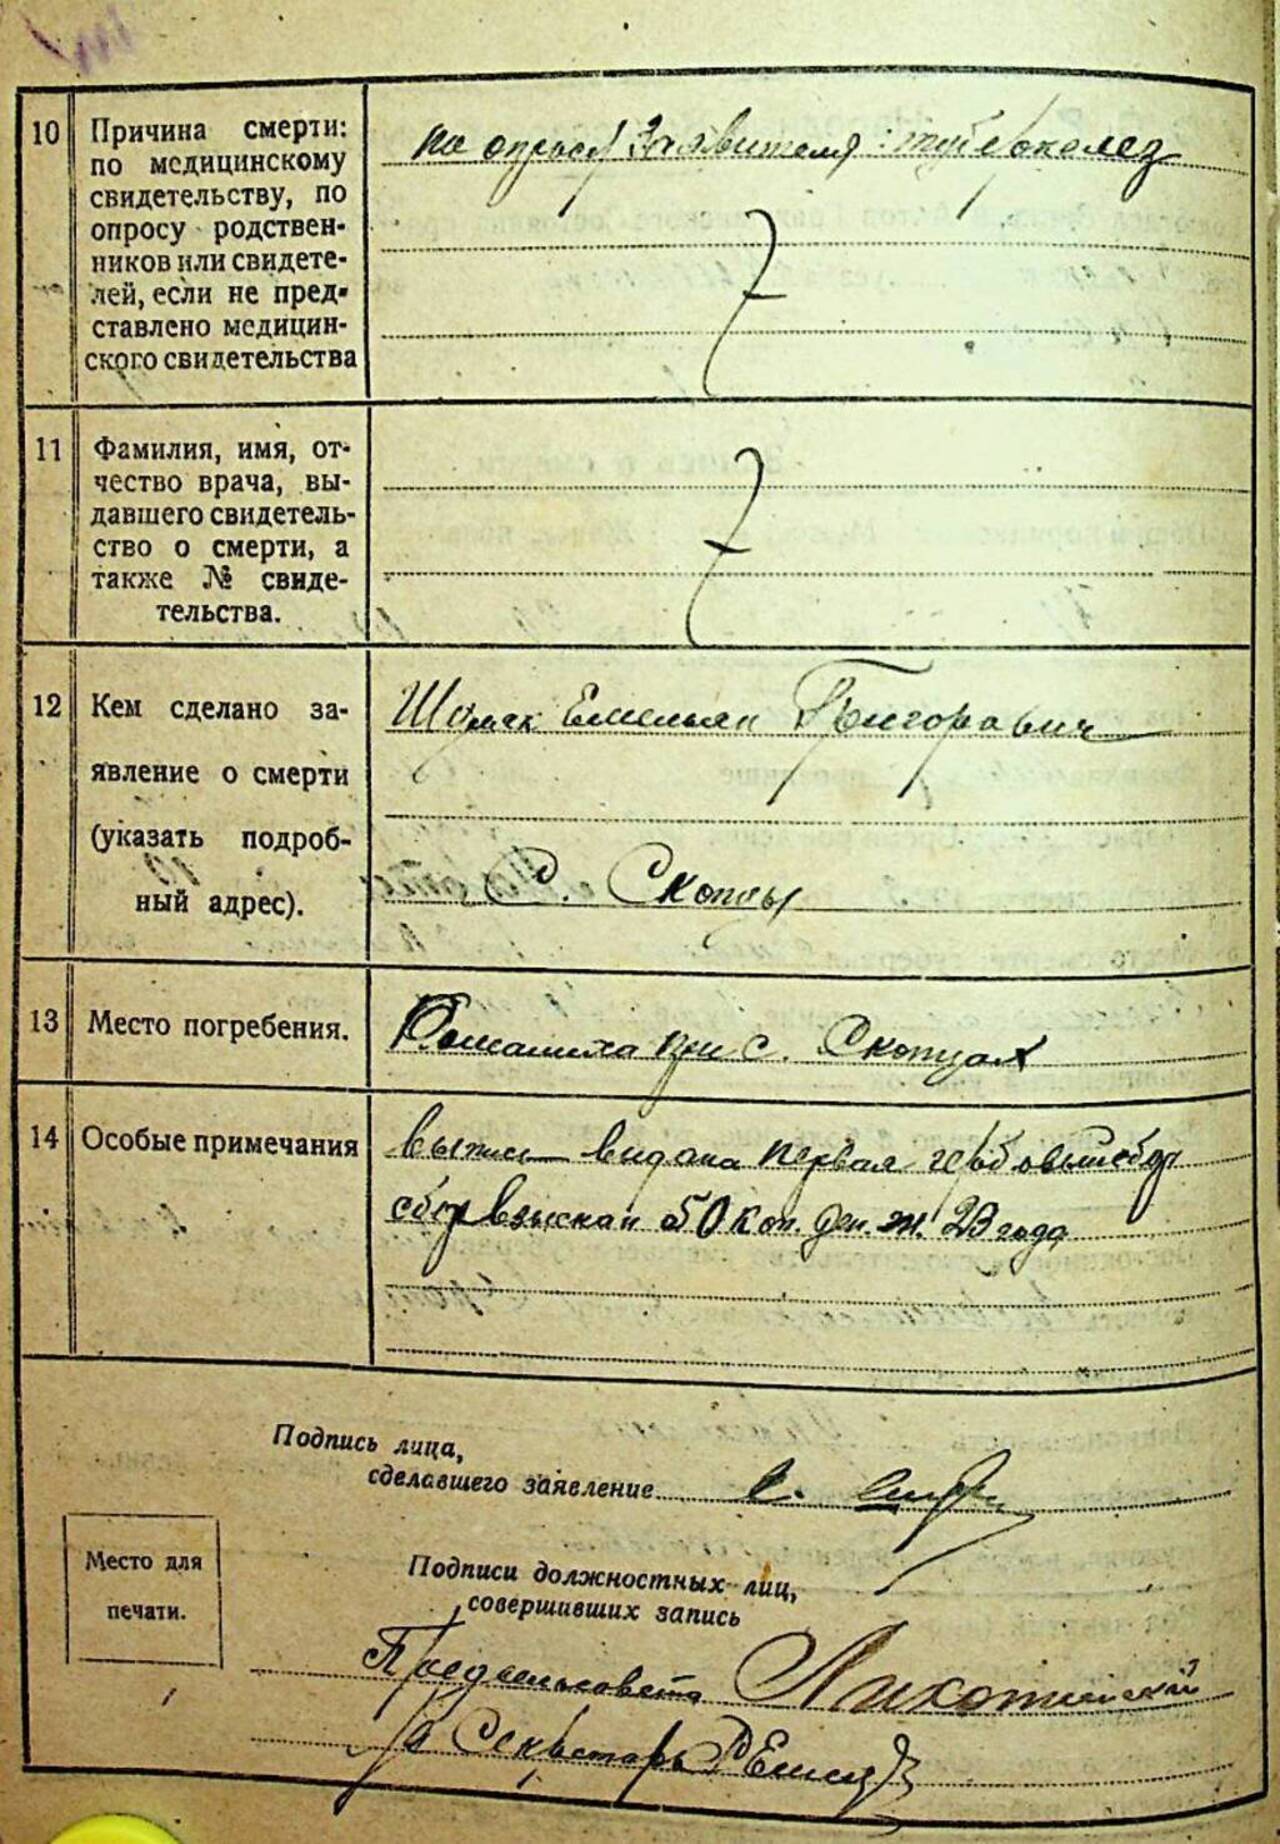 10 Причина смерти:
по медицинскому
свидетельству, по
опросу родствен-
ников или свидете-
лей, если не пред-
ставлено медицин-
ского свидетельства
по опросу Заявителя: туберкулез
11 Фамилия, имя, от-
чество врача, вы-
давшего свидетель-
ство о смерти, а
также № свиде-
тельства.
12 Кем сделано за-
явление о смерти
(указать подроб-
ный адрес).
Емельян Григорович
С. Скопцы
13 Место погребения.
при с. Скопцах
14 Особые примечания
выпись видана первая
сбор взыскан 50 коп. ден. зн. 23 года
Подпись лица,
сделавшего заявление
Место для
печати.
Подписи должностных лиц,
совершивших запись
Предсельсовета
За Секретарь